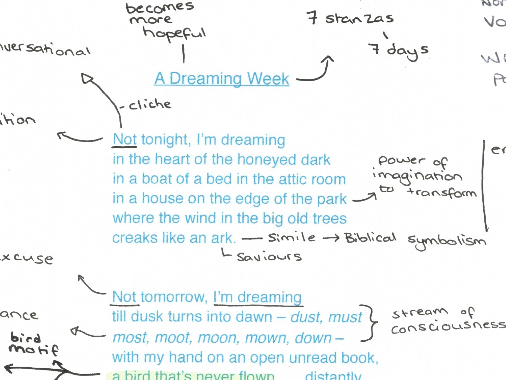 becomes
more
hopeful
7 stanzas
7 days
A Dreaming Week
cliche
Not tonight, I'm dreaming
in the heart of the honeyed dark
in a boat of a bed in the attic room
in a house on the edge of the park
where the wind in the big old trees
creaks like an ark.
simile → Biblical symbolism
saviours
power of
imagination
to transform
Not tomorrow, I'm dreaming
till dusk turns into dawn – dust, must
most, moot, moon, mown, down –
with my hand on an open unread book,
a bird that's never flown distantly
stream of
consciousness
bird
motif